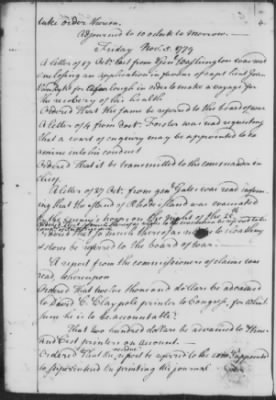 take order thereon.
Adjourned to 10 oClock to Morrow.
Friday Nov. 5. 1779
A letter of 27 Octr. last from Genl Washington was read
enclosing an application in favour of capt
for a furlough in order to make a voyage for
the recovery of his health
Ordered That the same be referred to the board of war
A letter of 4 from Forster was read requesting
that a court of enquiry may be appointed to ex
amine into his conduct
Ordered That it be transmitted to the commander in
chief.
A letter of 27 Octr. from genl Gates was read inform
ing that the Island of Rhode island was evacuated
by the enemy's troops on the night of the 25th
Ordered That so much thereof as relates to cloathing
stores be referred to the board of war.
A report from the commissioners of claims was
read, whereupon
Ordered That twelve thousand dollars be advanced
to David C. Claypole printer to Congress, for which
sum he is to be accountable:
That two hundred dollars be advanced to
and printers on account.
Ordered That the report be referred to the comee appointed
to superintend the printing the journal